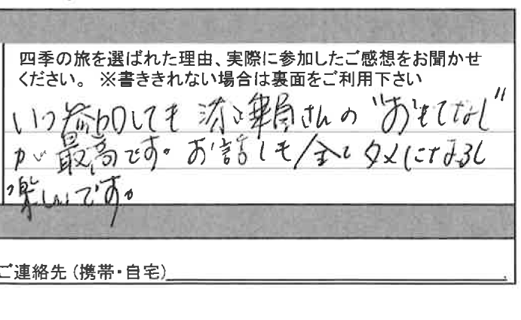 四季の旅を選ばれた理由、実際に参加したご感想をお聞かせ
ください。 ※書ききれない場合は裏面をご利用下さい
いつ参加しても 添乗員さんの "おもてなし"
が最高です。お話しも 全て タメになるし
楽しいです。
ご連絡先 (携帯・自宅)